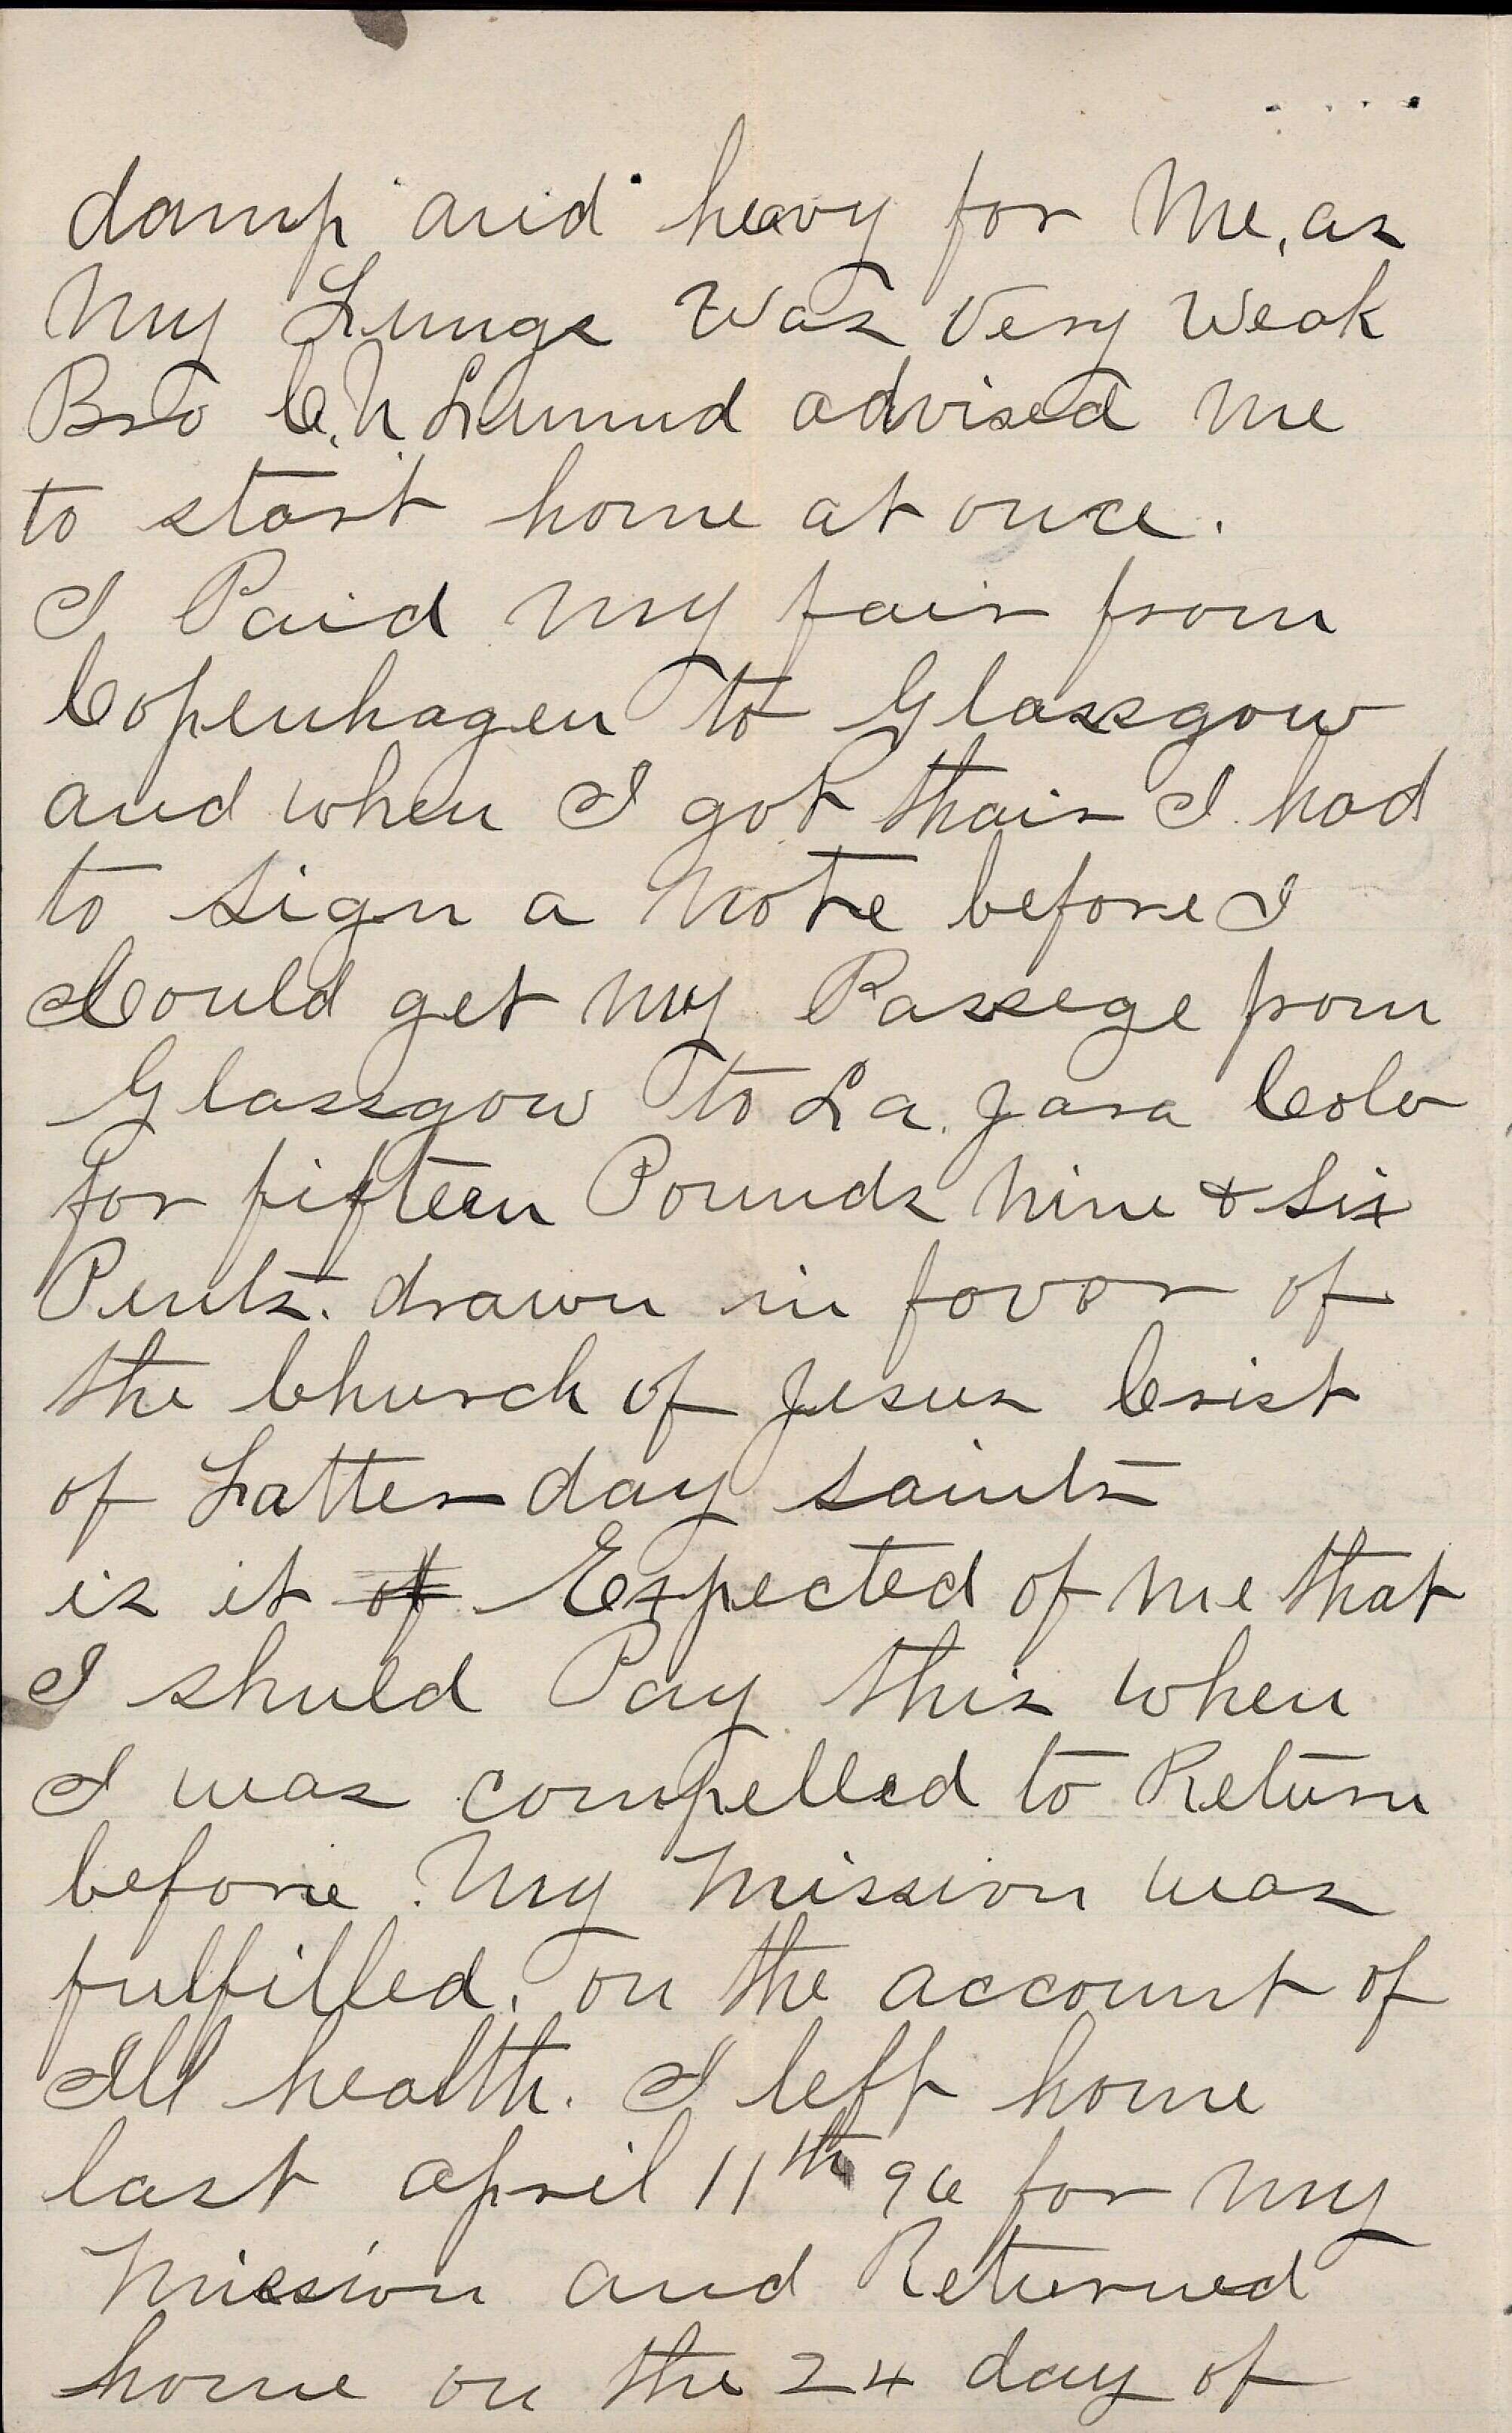 damp and heavy for Me, as
My Lungs Was Very Weak
Bro C. N Lunnd advised Me
to start home at once.
I Paid My fair from
Copenhagen to Glassgow
and when I got thair I had
to sign a Note before I
Could get My Passege from
Glassgow to La Jara Colo
for fifteen Pounds Nine & Six
Pents. drawn in favor of
the Church of Jesus Crist
of Latter day saints
is it of Expected of Me that
I shuld Pay this when
I was compelled to Return
before My Mission was
fulfilled, on the account of
Ill health. I left home
last april 11th 96 for My
Mission and Returned
home on the 24 day of